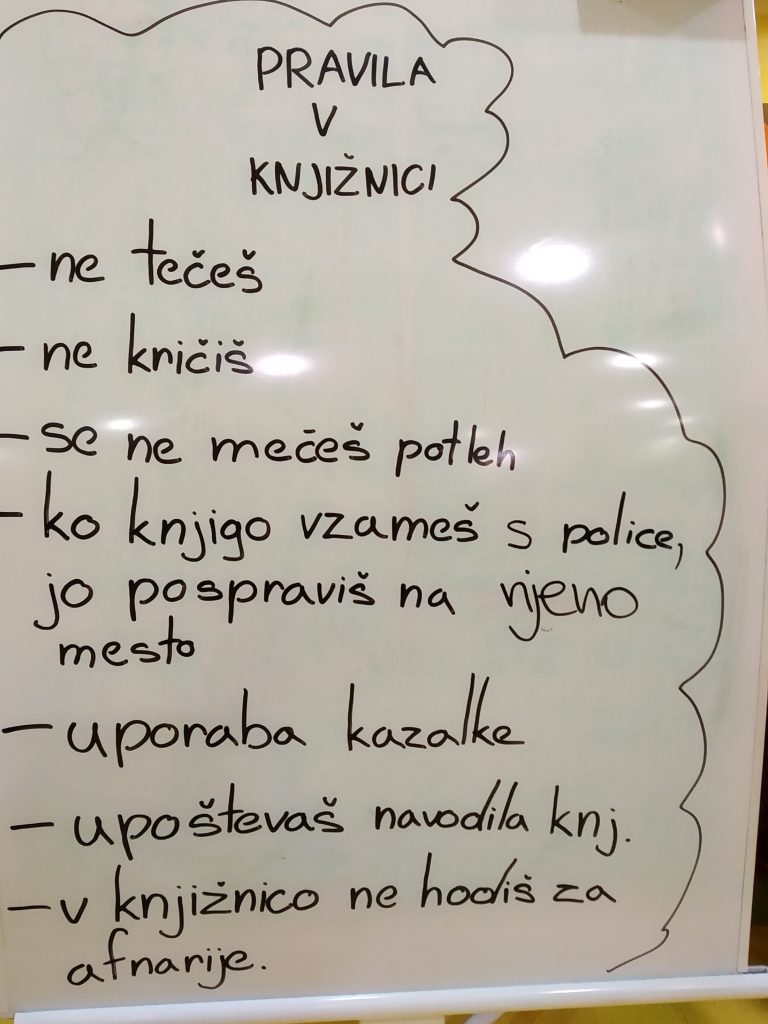 PRAVILA
V
KNJIŽNICI
- ne tečeš
- ne kričiš
- se ne mečeš potleh
- ko knjigo vzameš s police,
jo pospraviš na njeno
mesto
- uporaba kazalke
- upoštevaš navodila knj.
- v knjižnico ne hodiš za
afnarije.